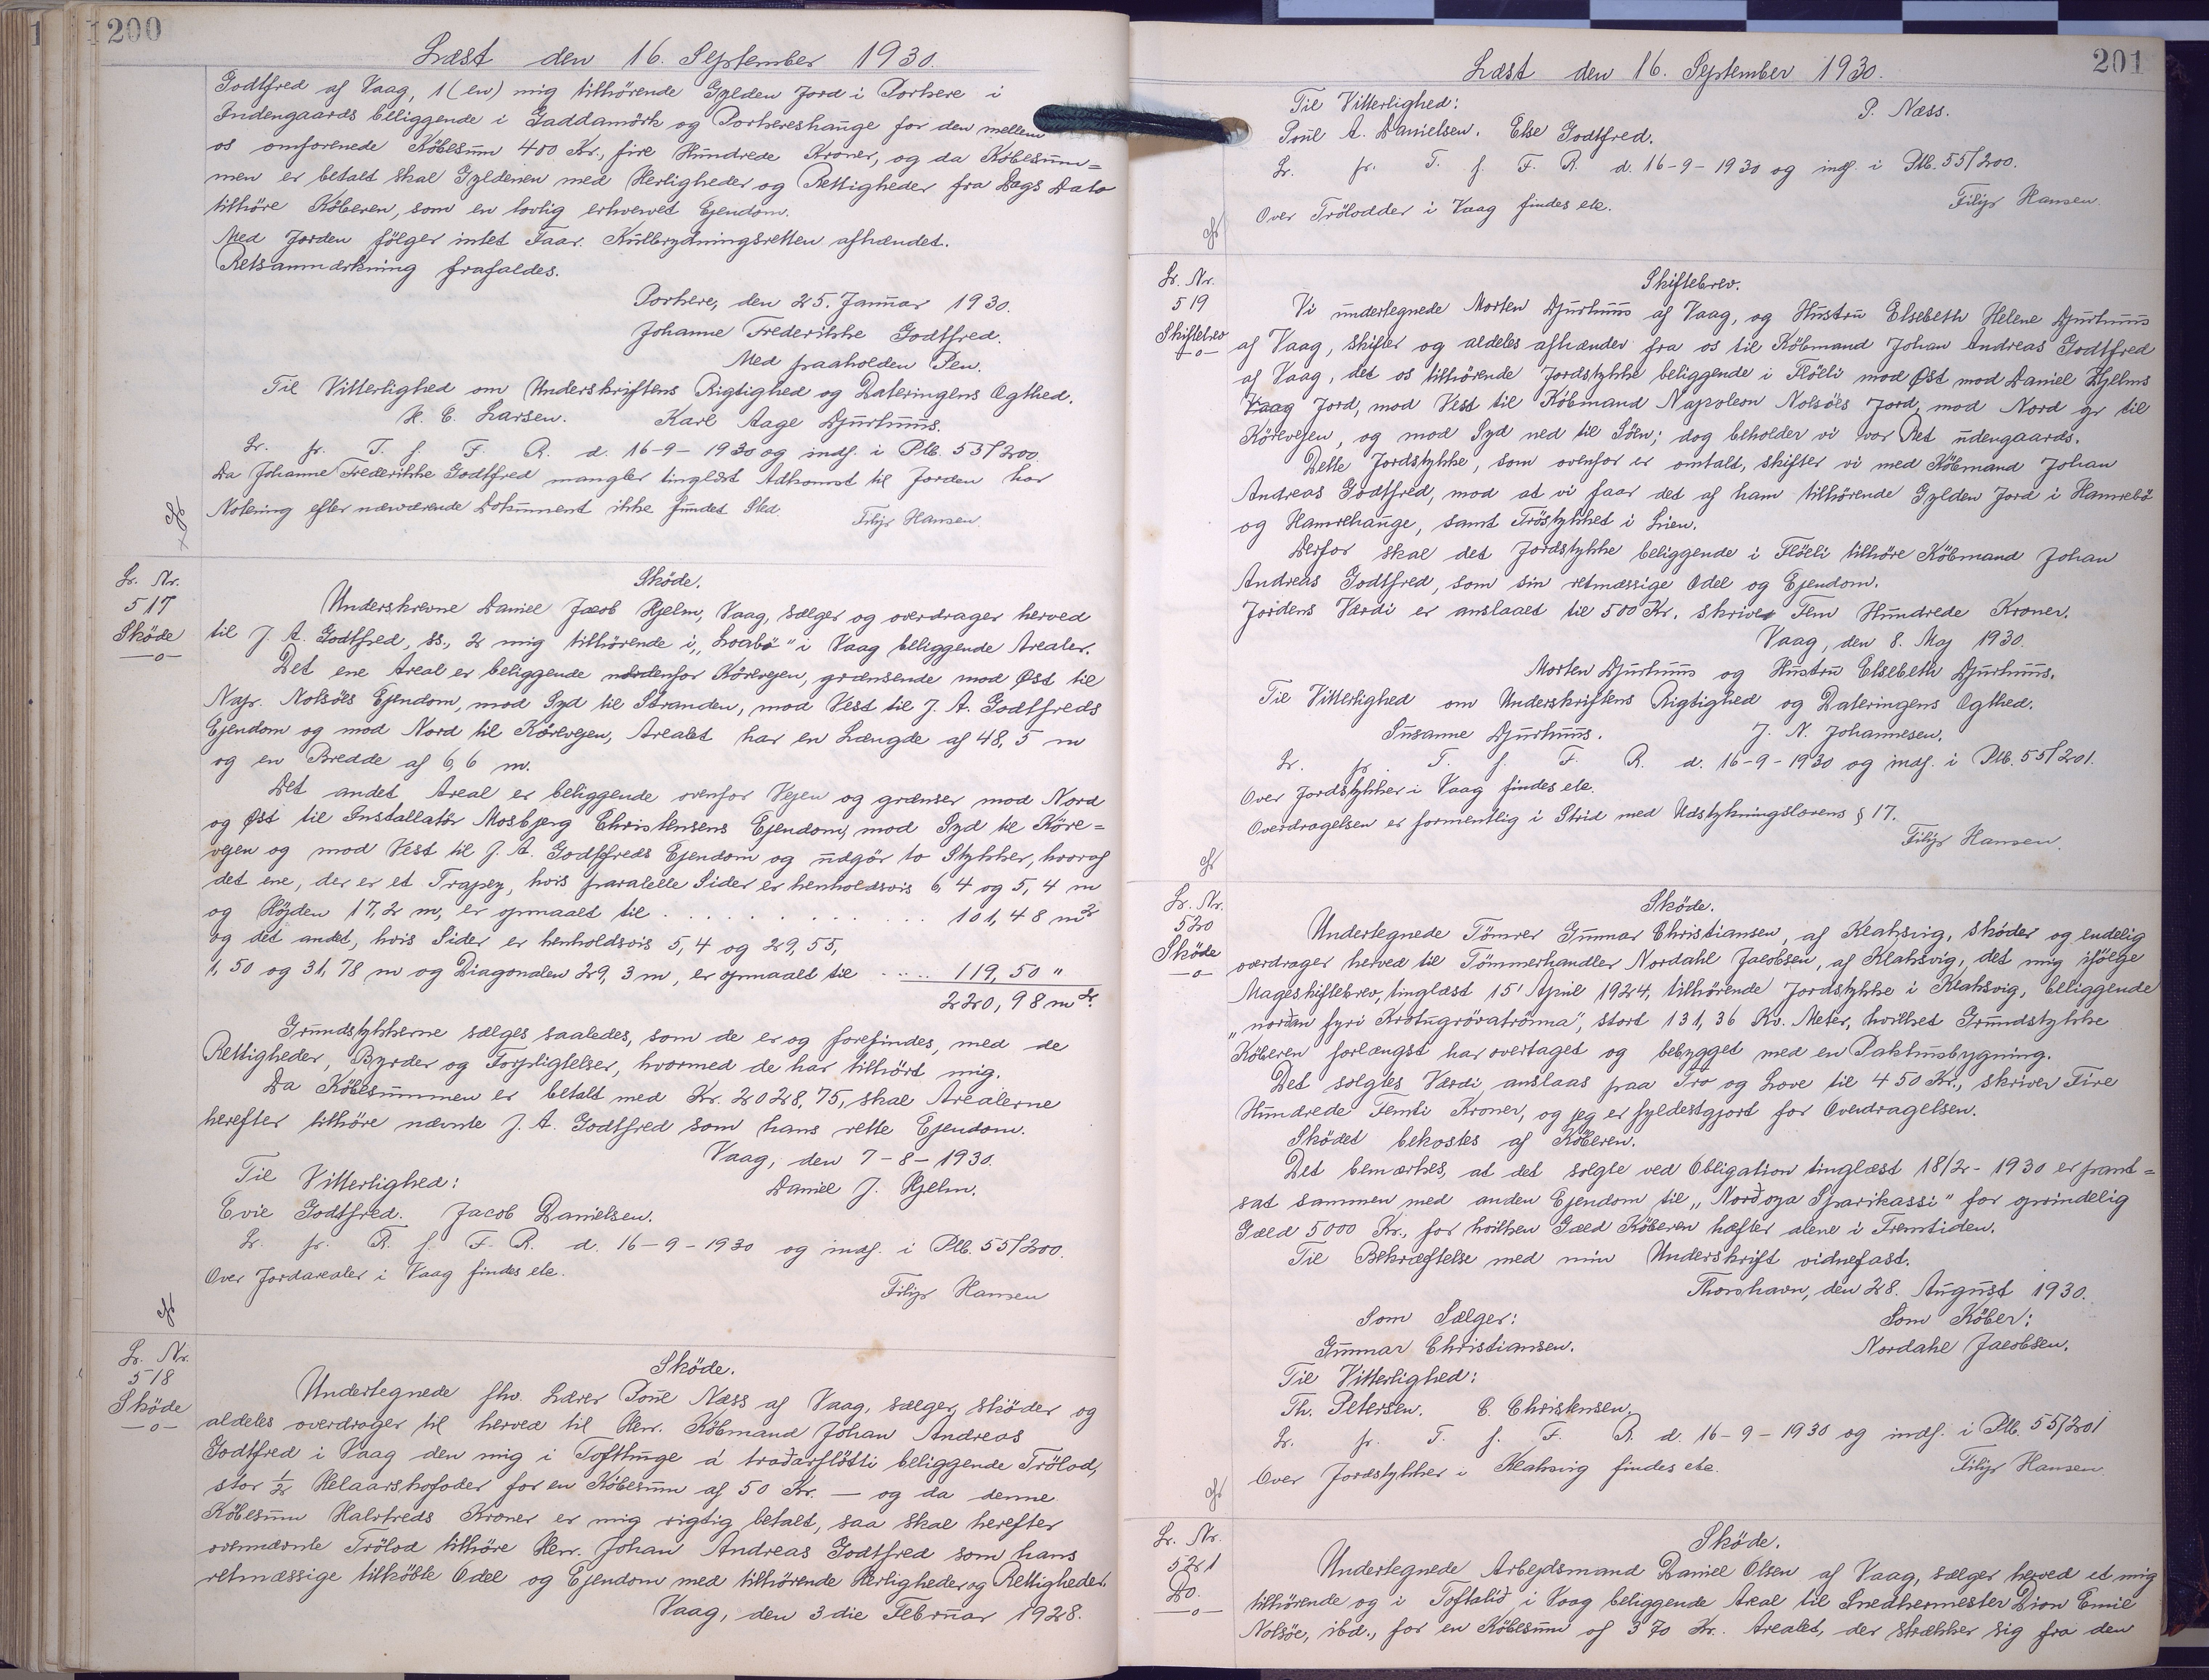 1200
Læst den 16. September 1930.
Godtfred af Vaag, 1 (en) mig tilhörende Gylden Jord i Porkere i
Indengaards beliggende i Gaddamörk og Porkereshauge for den mellem
os omforenede Köbesum 400 Kr., fire Hundrede Kroner, og da Köbesum=
men er betalt skal Gyldenen med Herligheder og Rettigheder fra Dags Dato
tilhöre Köberen, som en lovlig erhvervet Ejendom.
Med Jorden fölger intet Faar. Kulbrydningsretten afhændet.
Retsanmærkning frafaldes.
Porkere, den 25. Januar 1930.
Johanne Frederikke Godtfred.
Med paaholden Pen.
Til Vitterlighed om Underskriftens Rigtighed og Dateringens Ægthed.
K. E. Larsen. Karl Aage Djurhuus.
Lr. fr. T. f. F. R. d. 16-9-1930 og indf. i Plb. 53/200.
Da Johanne Frederikke Godtfred mangler tinglæst Adkomst til Jorden har
Notering efter nærværende Dokument ikke fundet Sted.
Filip Hansen.
Lr. Nr.
517
Sköde
—o—
Sköde.
Underskrevne Daniel Jacob Hjelm, Vaag, sælger og overdrager herved
til J. A. Godtfred, ss., 2 mig tilhörende i „Loabö" i Vaag beliggende Arealer.
Det ene Areal er beliggende nordenfor Körevejen, grænsende mod Øst til
Nap. Nolsöes Ejendom, mod Syd til Stranden, mod Vest til J. A. Godtfreds
Ejendom og mod Nord til Körevejen, Arealet har en Længde af 48,5 m
og en Bredde af 6,6 m.
Det andet Areal er beliggende ovenfor Vejen og grænser mod Nord
og Øst til Installatör Mosbjerg Christensens Ejendom, mod Syd til Köre=
vejen og mod Vest til J. A. Godtfreds Ejendom og udgör to Stykker, hvoraf
det ene, der er et Trapez, hvis paralelle Sider er henholdsvis 6,4 og 5,4 m
og Höjden 17,2 m, er opmaalt til . . . . . . . . . . . . . 101,48 m²
og det andet, hvis Sider er henholdsvis 5,4 og 29,55,
1,50 og 31,78 m og Diagonalen 29,3 m, er opmaalt til . . . . . 119,50 "
220,98 m².
Grundstykkerne sælges saaledes, som de er og forefindes, med de
Rettigheder, Byrder og Forpligtelser, hvormed de har tilhört mig.
Da Köbesummen er betalt med Kr. 2028,75, skal Arealerne
herefter tilhöre nævnte J. A. Godtfred som hans rette Ejendom.
Vaag, den 7-8-1930.
Til Vitterlighed: Daniel J. Hjelm.
Evie Godtfred. Jacob Danielsen.
Lr. fr. R. f. F. R. d. 16-9-1930 og indf. i Plb. 55/200.
Over Jordarealer i Vaag findes ete.
Filip Hansen
Lr. Nr.
518
Sköde
—o—
Sköde.
Undertegnede fhv. Lærer Poul Næss af Vaag, sælger, sköder og
aldeles overdrager til herved til Herr. Köbmand Johan Andreas
Godtfred i Vaag den mig i Tofthuge á traðarflötti beliggende Trölod,
stor ½ Helaarskofoder for en Köbesum af 50 Kr. — og da denne
Köbesum Halvtreds Kroner er mig rigtig betalt, saa skal herefter
ovennævnte Trölod tilhöre Herr. Johan Andreas Godtfred som hans
retmæssige tilköbte Odel og Ejendom med tilhörende Herligheder og Rettigheder.
Vaag, den 3 die Februar 1928.
201
Læst den 16. September 1930.
Til Vitterlighed: P. Næss.
Poul A. Danielsen. Else Godtfred.
Lr. fr. T. f. F. R. d. 16-9-1930 og indf. i Plb. 55/200.
Over Trölodder i Vaag findes ete.
Filip Hansen.
Lr. Nr.
519
Skiftebrev
—o—
Skiftebrev.
Vi undertegnede Morten Djurhuus af Vaag, og Hustru Elsebeth Helene Djurhuus
af Vaag, skifter og aldeles afhænder fra os til Köbmand Johan Andreas Godtfred
af Vaag, det os tilhörende Jordstykke beliggende i Flöeli mod Øst mod Daniel Hjelms
Vaag Jord, mod Vest til Köbmand Napoleon Nolsöes Jord, mod Nord op til
Körevejen, og mod Syd ned til Söen; dog beholder vi vor Ret udengaards.
Dette Jordstykke, som ovenfor er omtalt, skifter vi med Köbmand Johan
Andreas Godtfred, mod at vi faar det af ham tilhörende Gylden Jord i Hamrebö
og Hamrehauge, samt Tröstykket i Lien.
Derfor skal det Jordstykke beliggende i Flöeli tilhöre Köbmand Johan
Andreas Godtfred, som sin retmæssige Odel og Ejendom.
Jordens Værdi er anslaaet til 500 Kr. skriver Fem Hundrede Kroner.
Vaag, den 8. Maj 1930.
Morten Djurhuus og Hustru Elsebeth Djurhuus.
Til Vitterlighed om Underskriftens Rigtighed og Dateringens Ægthed.
Susanne Djurhuus. J. N. Johannesen.
Lr. fr. T. f. F. R. d. 16-9-1930 og indf. i Plb. 55/201.
Over Jordstykker i Vaag findes ete.
Overdragelsen er formentlig i Strid med Udstykningslovens § 17.
Filip Hansen.
Lr. Nr.
520
Sköde
—o—
Sköde.
Undertegnede Tömrer Gunnar Christiansen, af Klaksvig, sköder og endelig
overdrager herved til Tömmerhandler Nordahl Jacobsen, af Klaksvig, det mig ifölge
Mageskiftebrev, tinglæst 15' April 1924, tilhörende Jordstykke i Klaksvig, beliggende
„norðan fyri Krotugrövatrönna", stort 131,36 Kv. Meter, hvilket Grundstykke
Köberen forlængst har overtaget og bebygget med en Pakhusbygning.
Det solgtes Værdi anslaas paa Tro og Love til 450 Kr., skriver Fire
Hundrede Femti Kroner, og jeg er fyldestgjort for Overdragelsen.
Sködet bekostes af Köberen.
Det bemærkes, at det solgte ved Obligation tinglæst 18/2-1930 er pant=
sat sammen med anden Ejendom til „Norðoya Sparikassi" for oprindelig
Gæld 5000 Kr., for hvilken Gæld Köberen hæfter alene i Fremtiden.
Til Bekræftelse med min Underskrift vidnefast.
Thorshavn, den 28. August 1930.
Som Sælger: Som Köber:
Gunnar Christiansen. Nordahl Jacobsen.
Til Vitterlighed:
Th. Petersen. C. Christensen.
Lr. fr. T. f. F. R. d. 16-9-1930 og indf. i Plb. 55/201
Over Jordstykker i Klaksvig findes ete.
Filip Hansen.
Lr. Nr.
521
Do.
—o—
Sköde.
Undertegnede Arbejdsmand Daniel Olsen af Vaag, sælger herved et mig
tilhörende og i Toftalið i Vaag beliggende Areal til Snedkermester Dion Emil
Nolsöe, ibd., for en Köbesum af 370 Kr. Arealet, der strækker sig fra den